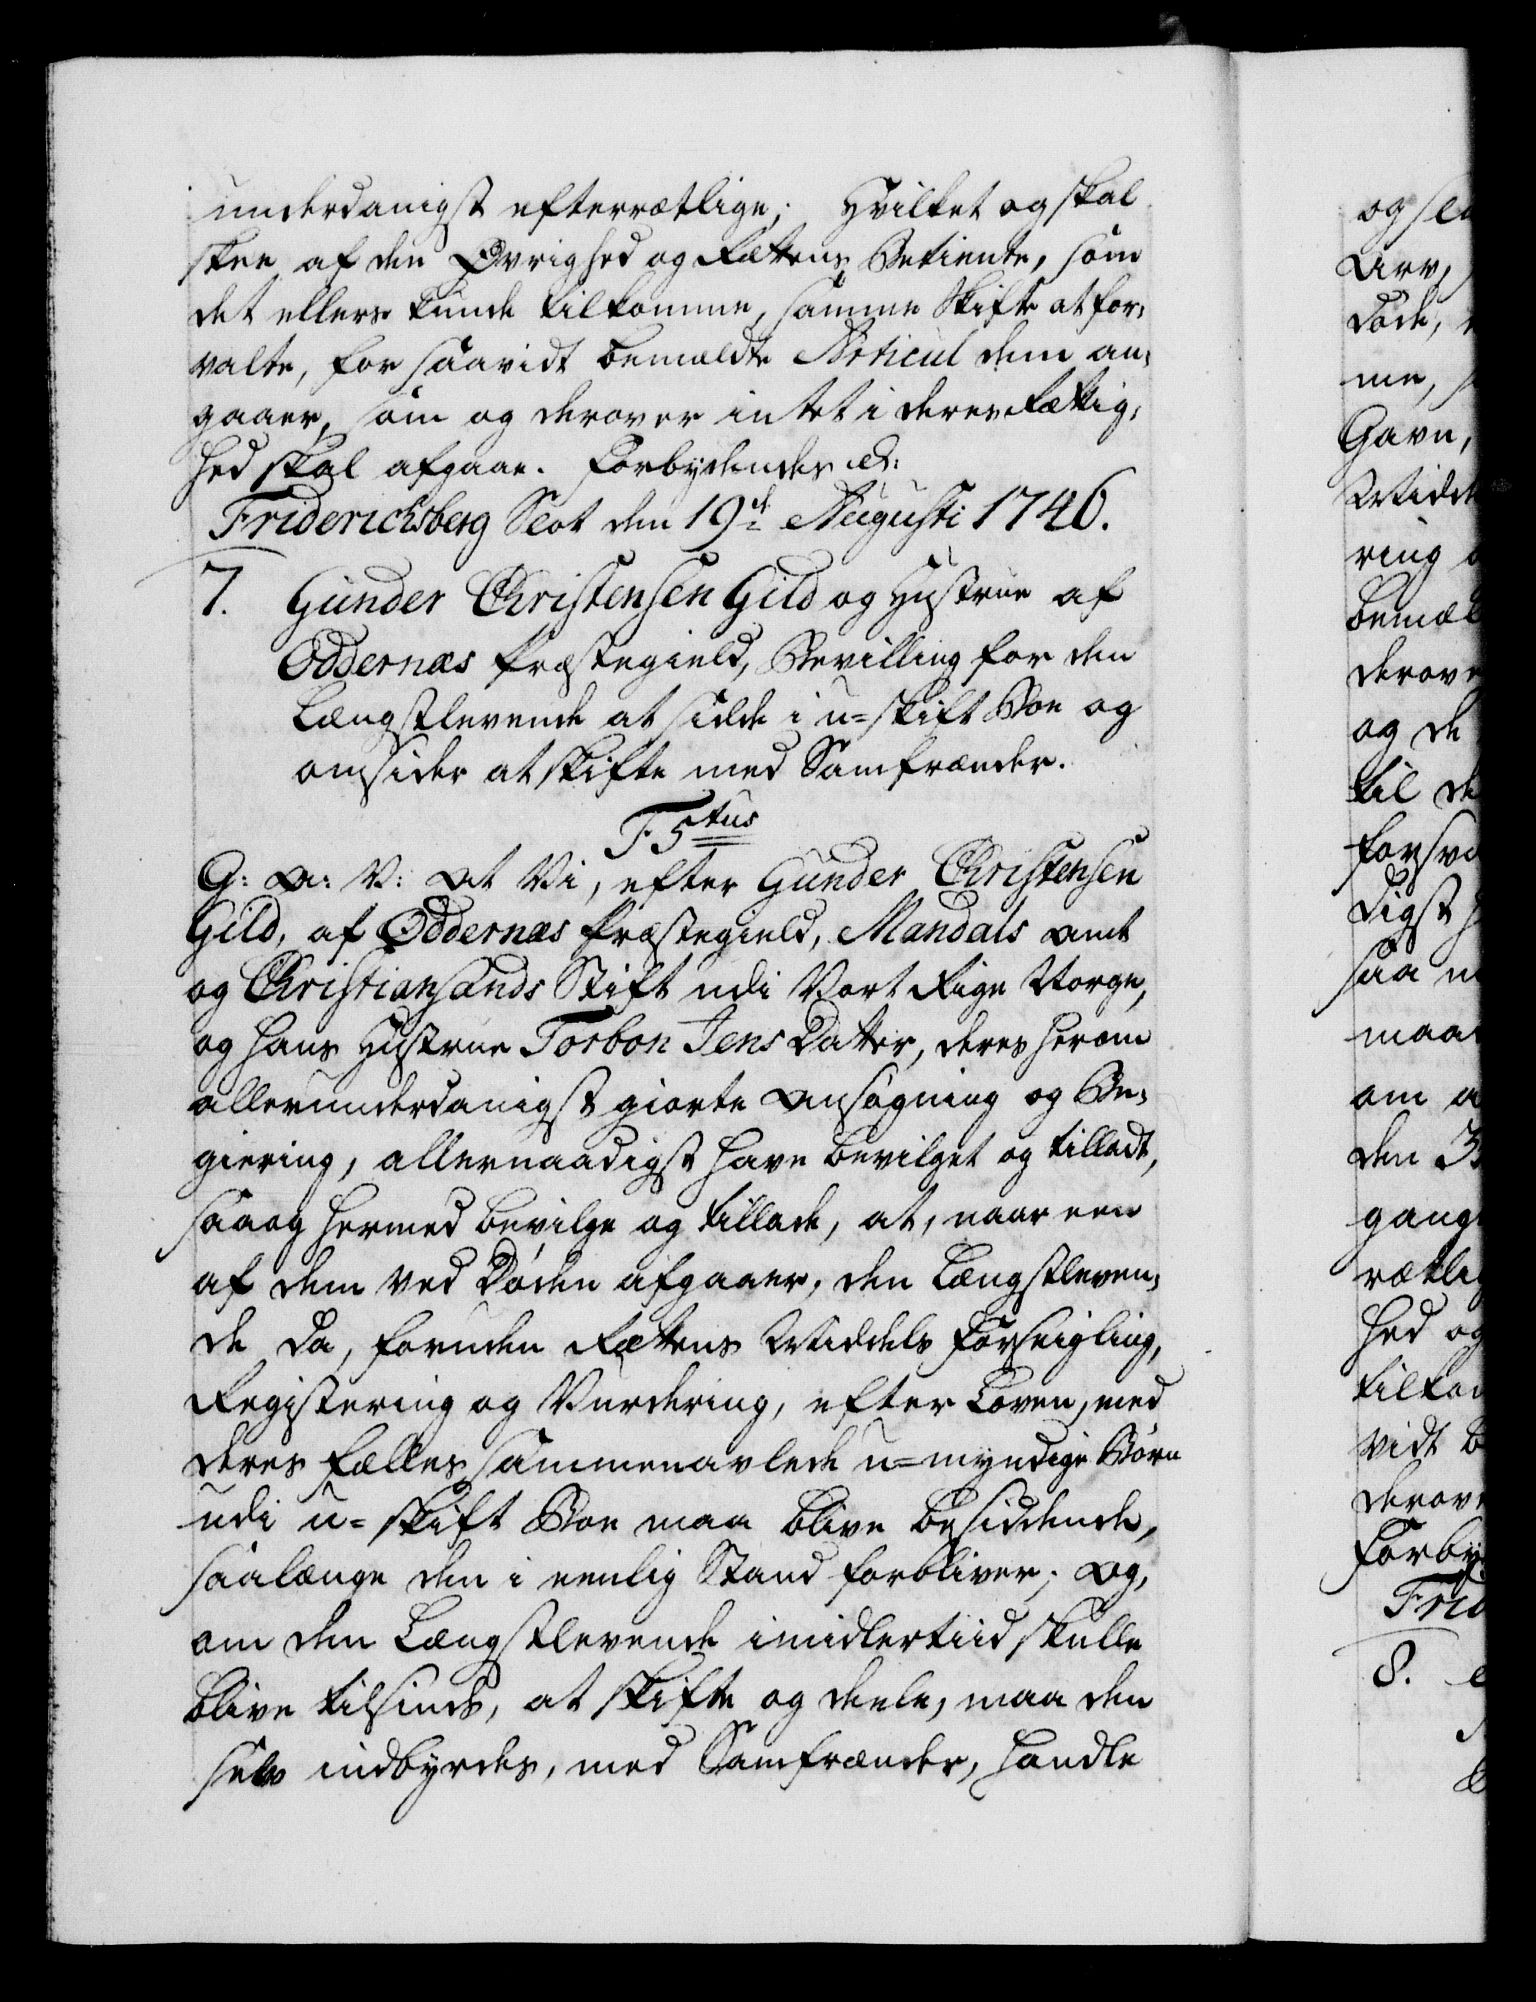 underdanigst efterretlige; Hvilket og skal
skee af den Øvrighed og Rettens Betiente, som
det ellers kunde tilkomme, samme Skifte at for,
valte, for saavidt bemældte Articul dem an,
gaaer, som og derover intet i deres Rettig,
hed skal afgaae. Forbydendes &c:
Friderichsberg Slot den 19de Augusti 1746.
7. Gunder Christensen Gild og Hustrue af
Oddernæs Præstegield, Bevilling for den
Længstlevende at sidde i u-skift Boe og
omsider at skifte med Samfrænder.
F5tus
G: A: V: At Vi, efter Gunder Christensen
Gild, af Oddernæs Præstegield, Mandals Amt
og Christiansands Stift udi Vort Rige Norge,
og hans Hustrue Torbon Jens Datter, deres herom
allerunderdanigst giorte Ansøgning og Be,
giering, allernaadigst have bevilget og tilladt,
saa og hermed bevilge og tillade, at, naar een
af dem ved Døden afgaaer, den Længstleven,
de da, foruden Rettens Middels Forseigling,
Registering og Vurdering, efter Loven, med
deres fælles sammenavlede u-myndige Børn
udi u-skift Boe maa blive besiddende,
saalænge den i eenlig Stand forbliver; Og,
om den Længstlevende imidlertiid skulle
blive tilsinds, at skifte og deele, maa den
selv indbyrdes, med Samfrænder, handle
og
Arv,
døde,
me,
Gavn,
Midde
ring
bemæl
derove
og de
til de
forsva
ligst
saa
maa
om
den 3
gang
rætli
hed og
tilko
vidt b
derov
Forby
Frid
8.